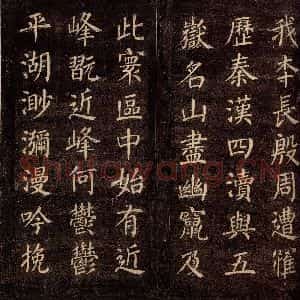 我本長殷周遭罹
歷秦漢四瀆與五
嶽名山盡幽竄及
此寰區中始有近
峰翫近峰何鬱鬱
平湖渺瀰漫吟挽